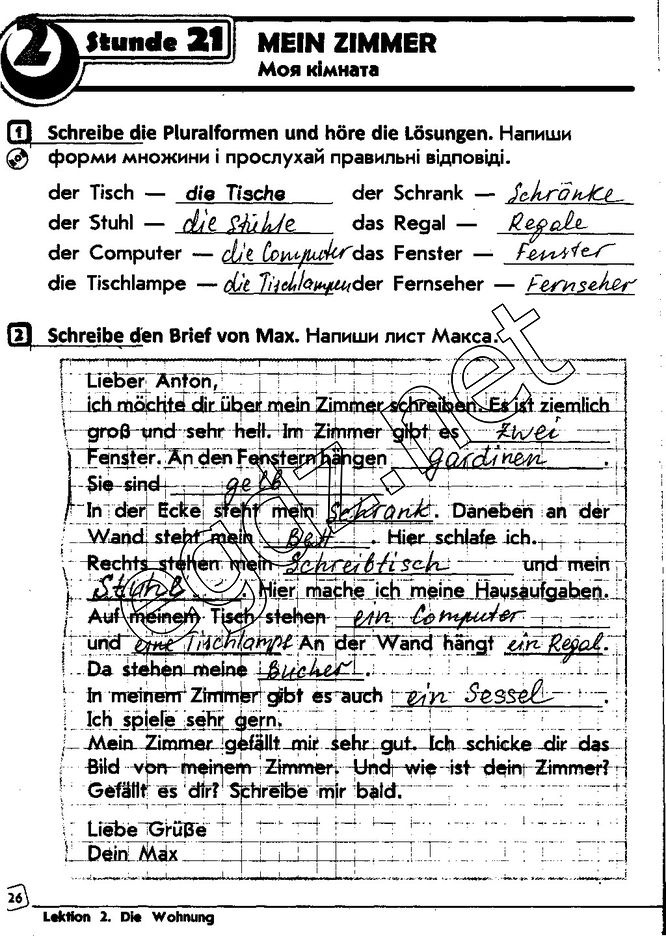 2 Stunde 21 MEIN ZIMMER
Моя кімната
1 Schreibe die Pluralformen und höre die Lösungen. Напиши
форми множини і прослухай правильні відповіді.
der Tisch — die Tische der Schrank — Schränke
der Stuhl — die Stühle das Regal — Regale
der Computer — die Computer das Fenster — Fenster
die Tischlampe — die Tischlampen der Fernseher — Fernseher
2 Schreibe den Brief von Max. Напиши лист Макса.
Lieber Anton,
ich möchte dir über mein Zimmer schreiben. Es ist ziemlich
groß und sehr hell. Im Zimmer gibt es zwei
Fenster. An den Fenstern hängen gardinen.
Sie sind gelb
In der Ecke steht mein Schrank. Daneben an der
Wand steht mein Bett. Hier schlafe ich.
Rechts stehen mein Schreibtisch und mein
Stuhl. Hier mache ich meine Hausaufgaben.
Auf meinem Tisch stehen ein Computer
und eine Tischlampe An der Wand hängt ein Regal.
Da stehen meine Bücher.
In meinem Zimmer gibt es auch ein Sessel.
Ich spiele sehr gern.
Mein Zimmer gefällt mir sehr gut. Ich schicke dir das
Bild von meinem Zimmer. Und wie ist dein Zimmer?
Gefällt es dir? Schreibe mir bald.
Liebe Grüße
Dein Max
egdz.net
26
Lektion 2. Die Wohnung